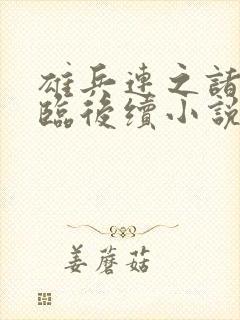 雄兵連之諸
臨後續小説
姜蘑菇